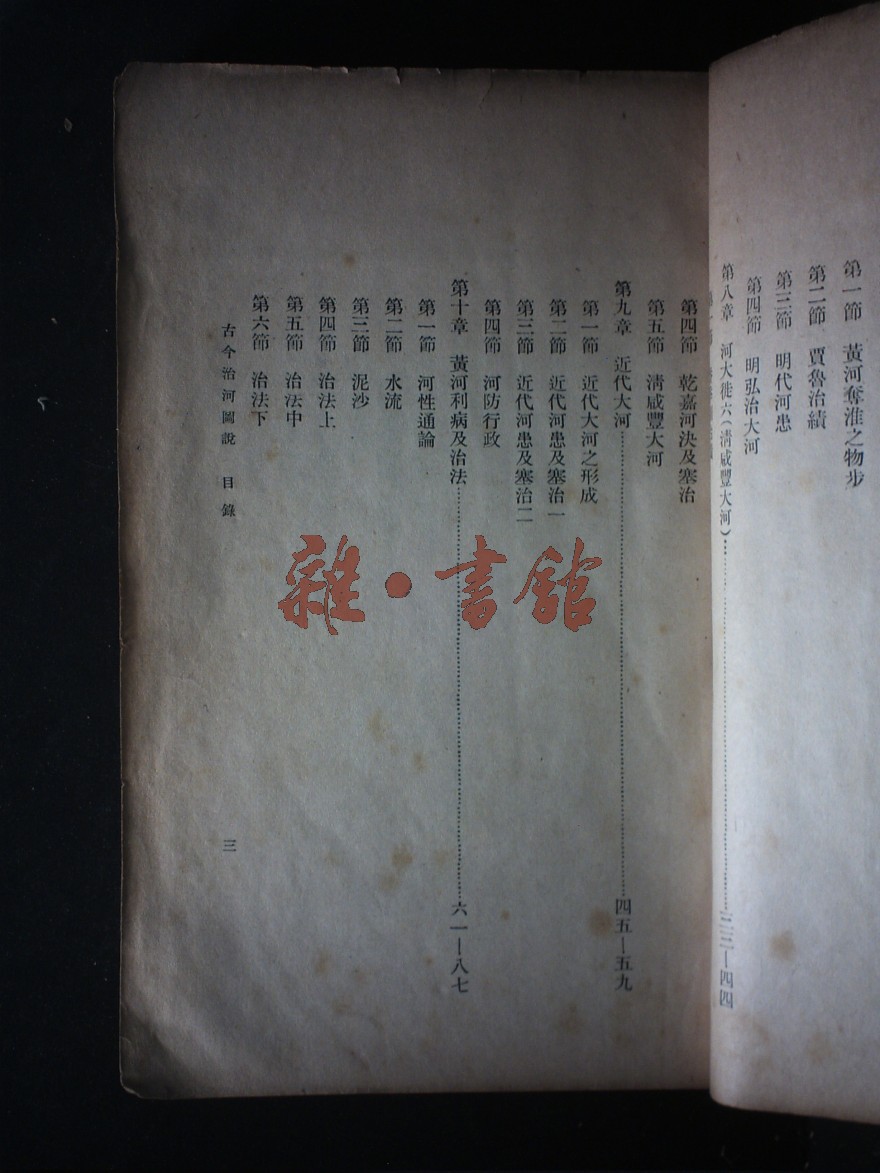 第一節 黃河奪淮之物步
第二節 賈魯治績
第三節 明代河患
第四節 明弘治大河
第八章 河大徙六(淸咸豐大河)…三三—四四
第四節 乾嘉河決及塞治
第五節 淸咸豐大河
第九章 近代大河…四五—五九
第一節 近代大河之形成
第二節 近代河患及塞治一
第三節 近代河患及塞治二
第四節 河防行政
第十章 黃河利病及治法…六一—八七
第一節 河性通論
第二節 水流
第三節 泥沙
第四節 治法上
第五節 治法中
第六節 治法下
古今治河圖說 目錄
三
雜·書館